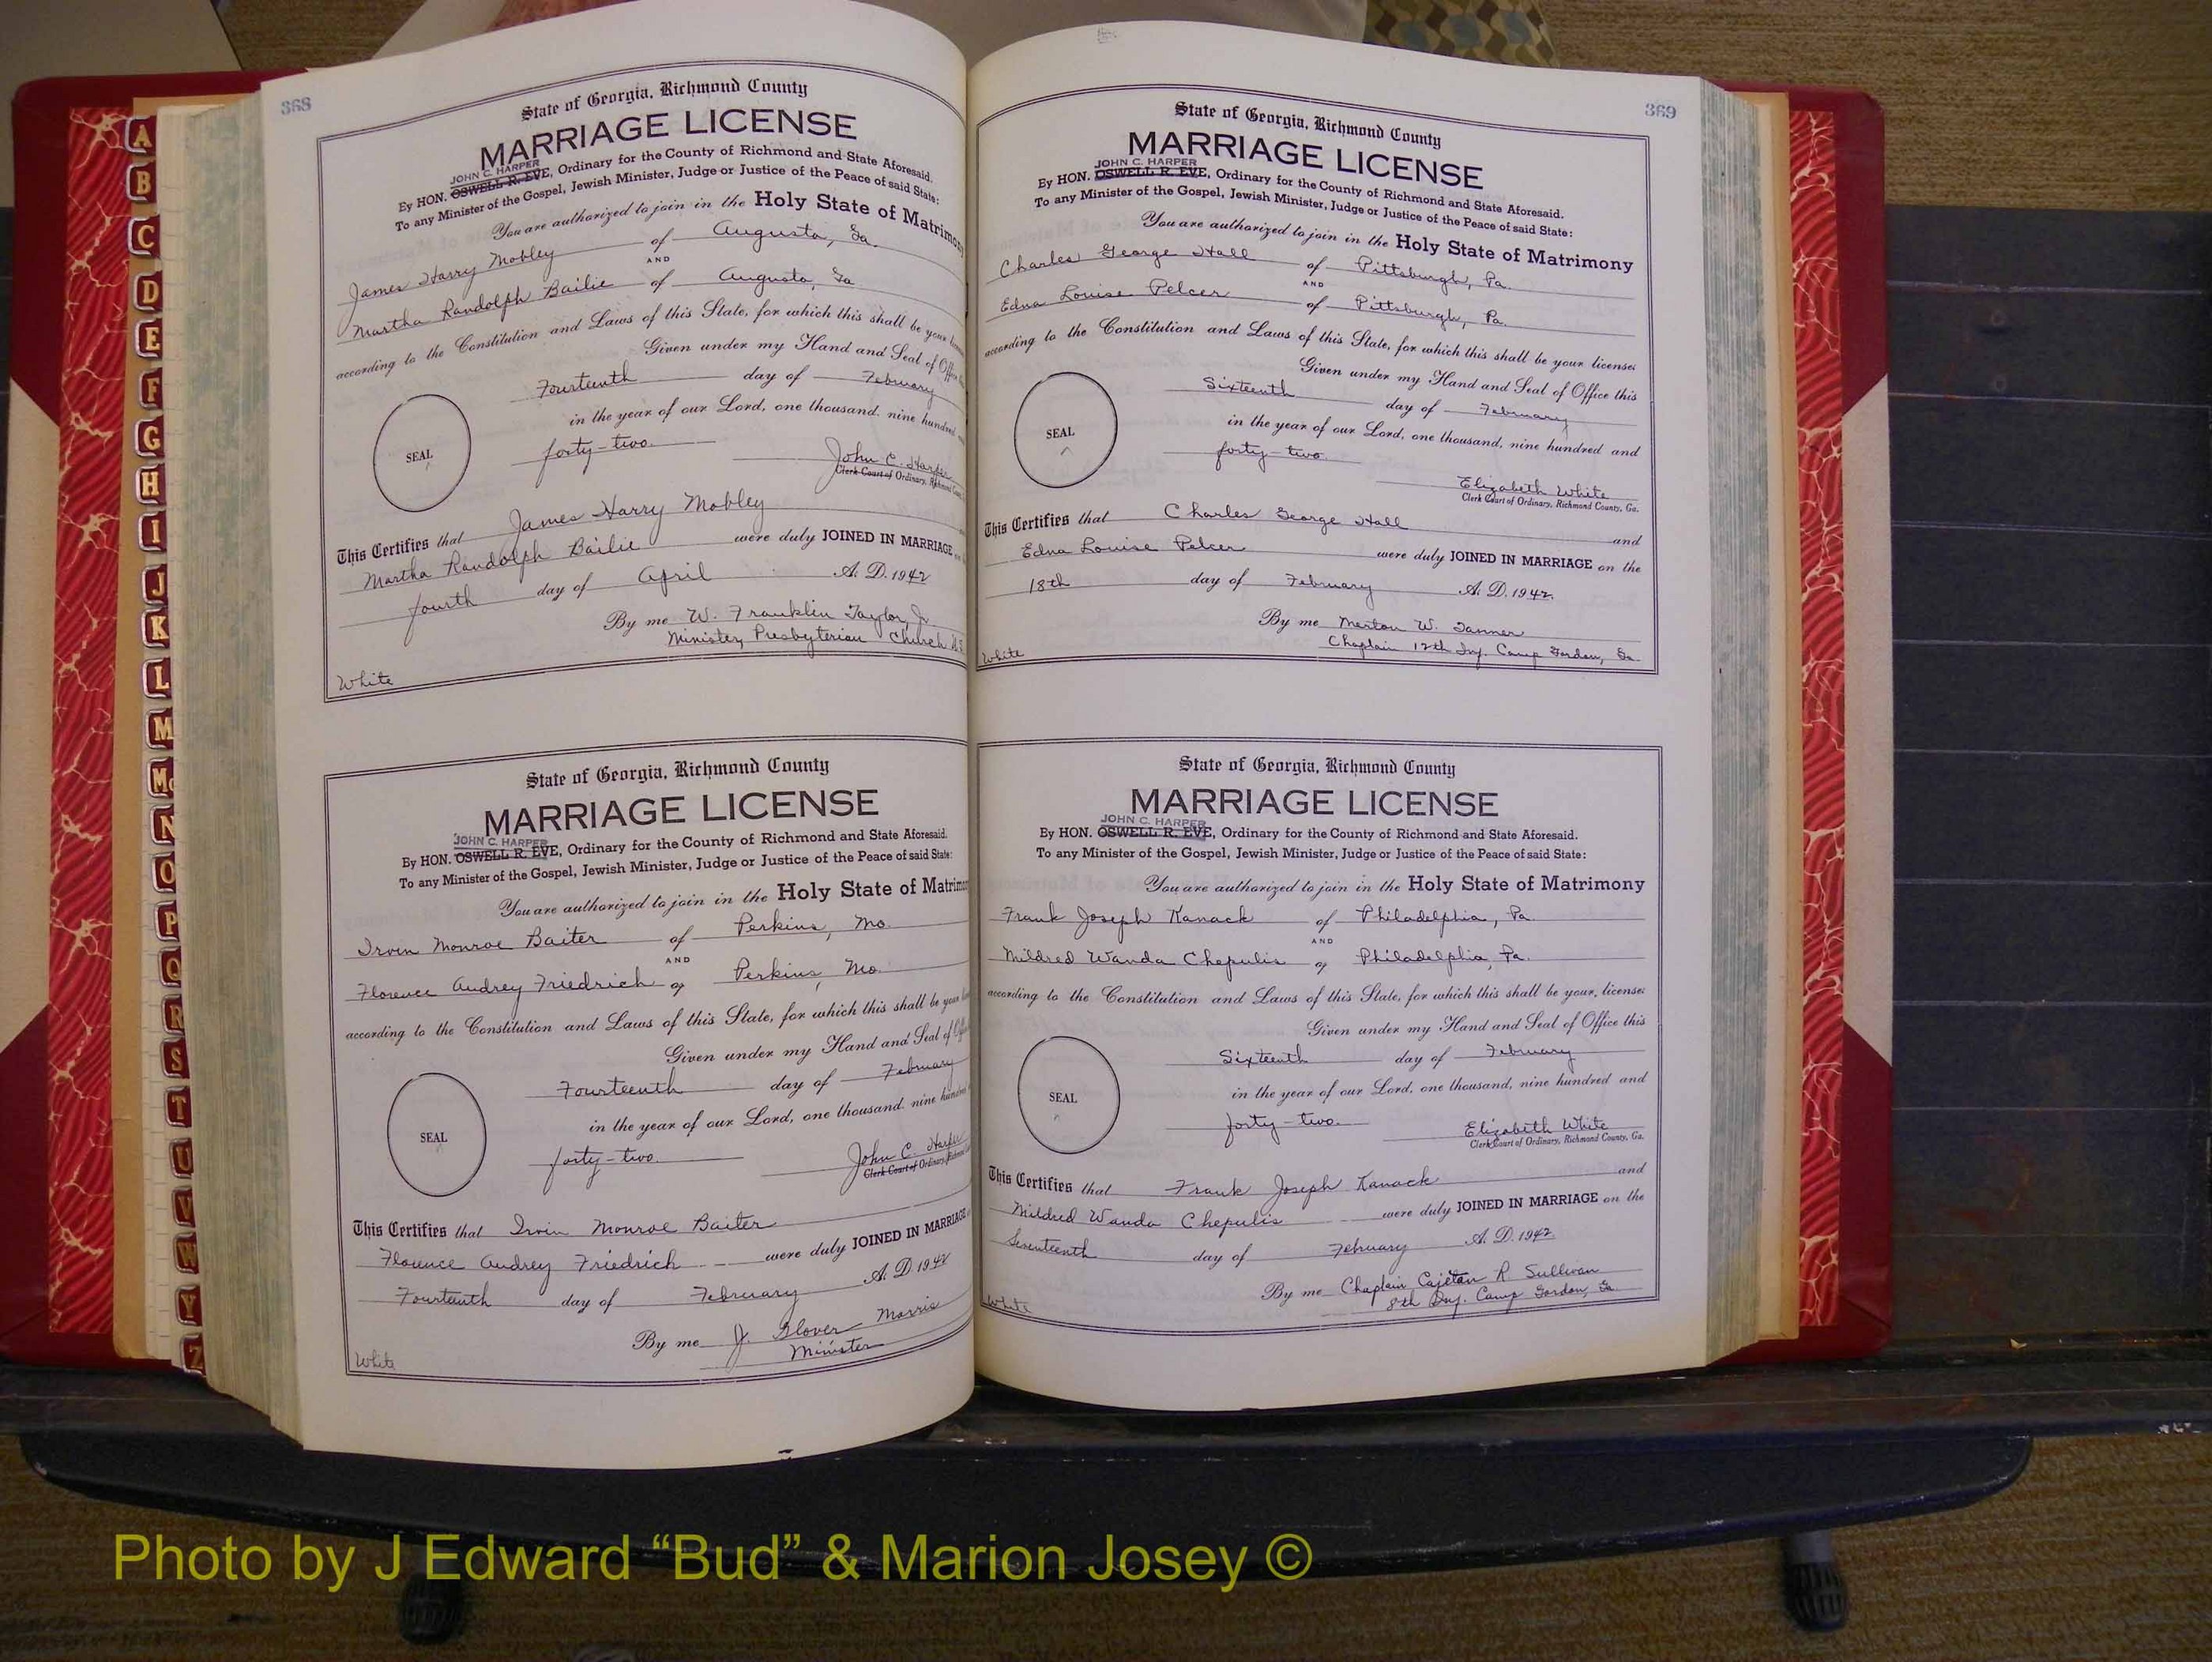 368
State of Georgia, Richmond County
MARRIAGE LICENSE
JOHN C. HARPER
By HON. OSWELL R. EVE, Ordinary for the County of Richmond and State Aforesaid.
To any Minister of the Gospel, Jewish Minister, Judge or Justice of the Peace of said State:
You are authorized to join in the Holy State of Matrimony
James Harry Mobley of Augusta, Ga.
AND
Martha Randolph Bailie of Augusta, Ga
according to the Constitution and Laws of this State, for which this shall be your
Given under my Hand and Seal of Office
Fourteenth day of February
in the year of our Lord, one thousand, nine hundred
forty-two.
SEAL
John C. Harper
Clerk Court of Ordinary, Richmond
This Certifies that James Harry Mobley
Martha Randolph Bailie were duly JOINED IN MARRIAGE
fourth day of April A. D. 1942
By me W. Franklin Taylor, Jr
Minister, Presbyterian Church
White
State of Georgia, Richmond County
MARRIAGE LICENSE
JOHN C. HARPER
By HON. OSWELL R. EVE, Ordinary for the County of Richmond and State Aforesaid.
To any Minister of the Gospel, Jewish Minister, Judge or Justice of the Peace of said State:
You are authorized to join in the Holy State of Matrimony
Irvin Monroe Baiter of Perkins, Mo.
AND
Florence Audrey Friedrich of Perkins, Mo.
according to the Constitution and Laws of this State, for which this shall be your
Given under my Hand and Seal of
Fourteenth day of February
in the year of our Lord, one thousand, nine hundred
forty-two.
SEAL
John C. Harper
Clerk Court of Ordinary, Richmond
This Certifies that Irvin Monroe Baiter
Florence Audrey Friedrich were duly JOINED IN MARRIAGE
Fourteenth day of February A. D. 1942
By me J. Glover Morris
Minister
White
369
State of Georgia, Richmond County
MARRIAGE LICENSE
JOHN C. HARPER
By HON. OSWELL R. EVE, Ordinary for the County of Richmond and State Aforesaid.
To any Minister of the Gospel, Jewish Minister, Judge or Justice of the Peace of said State:
You are authorized to join in the Holy State of Matrimony
Charles George Hall of Pittsburgh, Pa.
AND
Edna Louise Pelcer of Pittsburgh, Pa.
according to the Constitution and Laws of this State, for which this shall be your license:
Given under my Hand and Seal of Office this
Sixteenth day of February
in the year of our Lord, one thousand, nine hundred and
forty-two.
SEAL
Elizabeth White
Clerk Court of Ordinary, Richmond County, Ga.
This Certifies that Charles George Hall and
Edna Louise Pelcer were duly JOINED IN MARRIAGE on the
18th day of February A. D. 1942.
By me Merton W. Tanner
Chaplain 12th Inf. Camp Gordon, Ga.
White
State of Georgia, Richmond County
MARRIAGE LICENSE
JOHN C. HARPER
By HON. OSWELL R. EVE, Ordinary for the County of Richmond and State Aforesaid.
To any Minister of the Gospel, Jewish Minister, Judge or Justice of the Peace of said State:
You are authorized to join in the Holy State of Matrimony
Frank Joseph Kanack of Philadelphia, Pa.
AND
Mildred Wanda Chepulis of Philadelphia, Pa.
according to the Constitution and Laws of this State, for which this shall be your license:
Given under my Hand and Seal of Office this
Sixteenth day of February
in the year of our Lord, one thousand, nine hundred and
forty-two.
SEAL
Elizabeth White
Clerk Court of Ordinary, Richmond County, Ga.
This Certifies that Frank Joseph Kanack and
Mildred Wanda Chepulis were duly JOINED IN MARRIAGE on the
Seventeenth day of February A. D. 1942
By me Chaplain Cajetan R Sullivan
8th Inf. Camp Gordon, Ga.
White
A
B
C
D
E
F
G
H
I
J
K
L
M
Mc
N
O
P
Q
R
S
T
U
V
W
Y
Z
Photo by J Edward “Bud” & Marion Josey ©